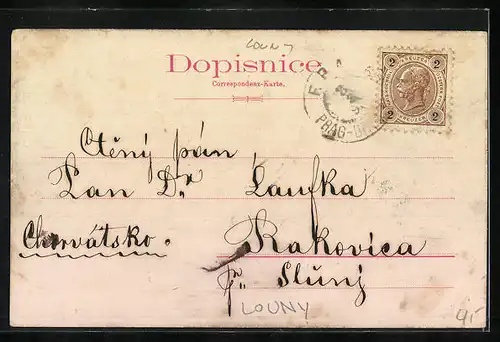 LOUNY
Dopisnice
Correspondenz-Karte.
2 KREUZER 2
2 KREUZER 2
PRAG-
Ctěný pán
Pan Dr. Laufka
Chorvátsko. Rakovica
p. Slunj
LOUNY
4,-